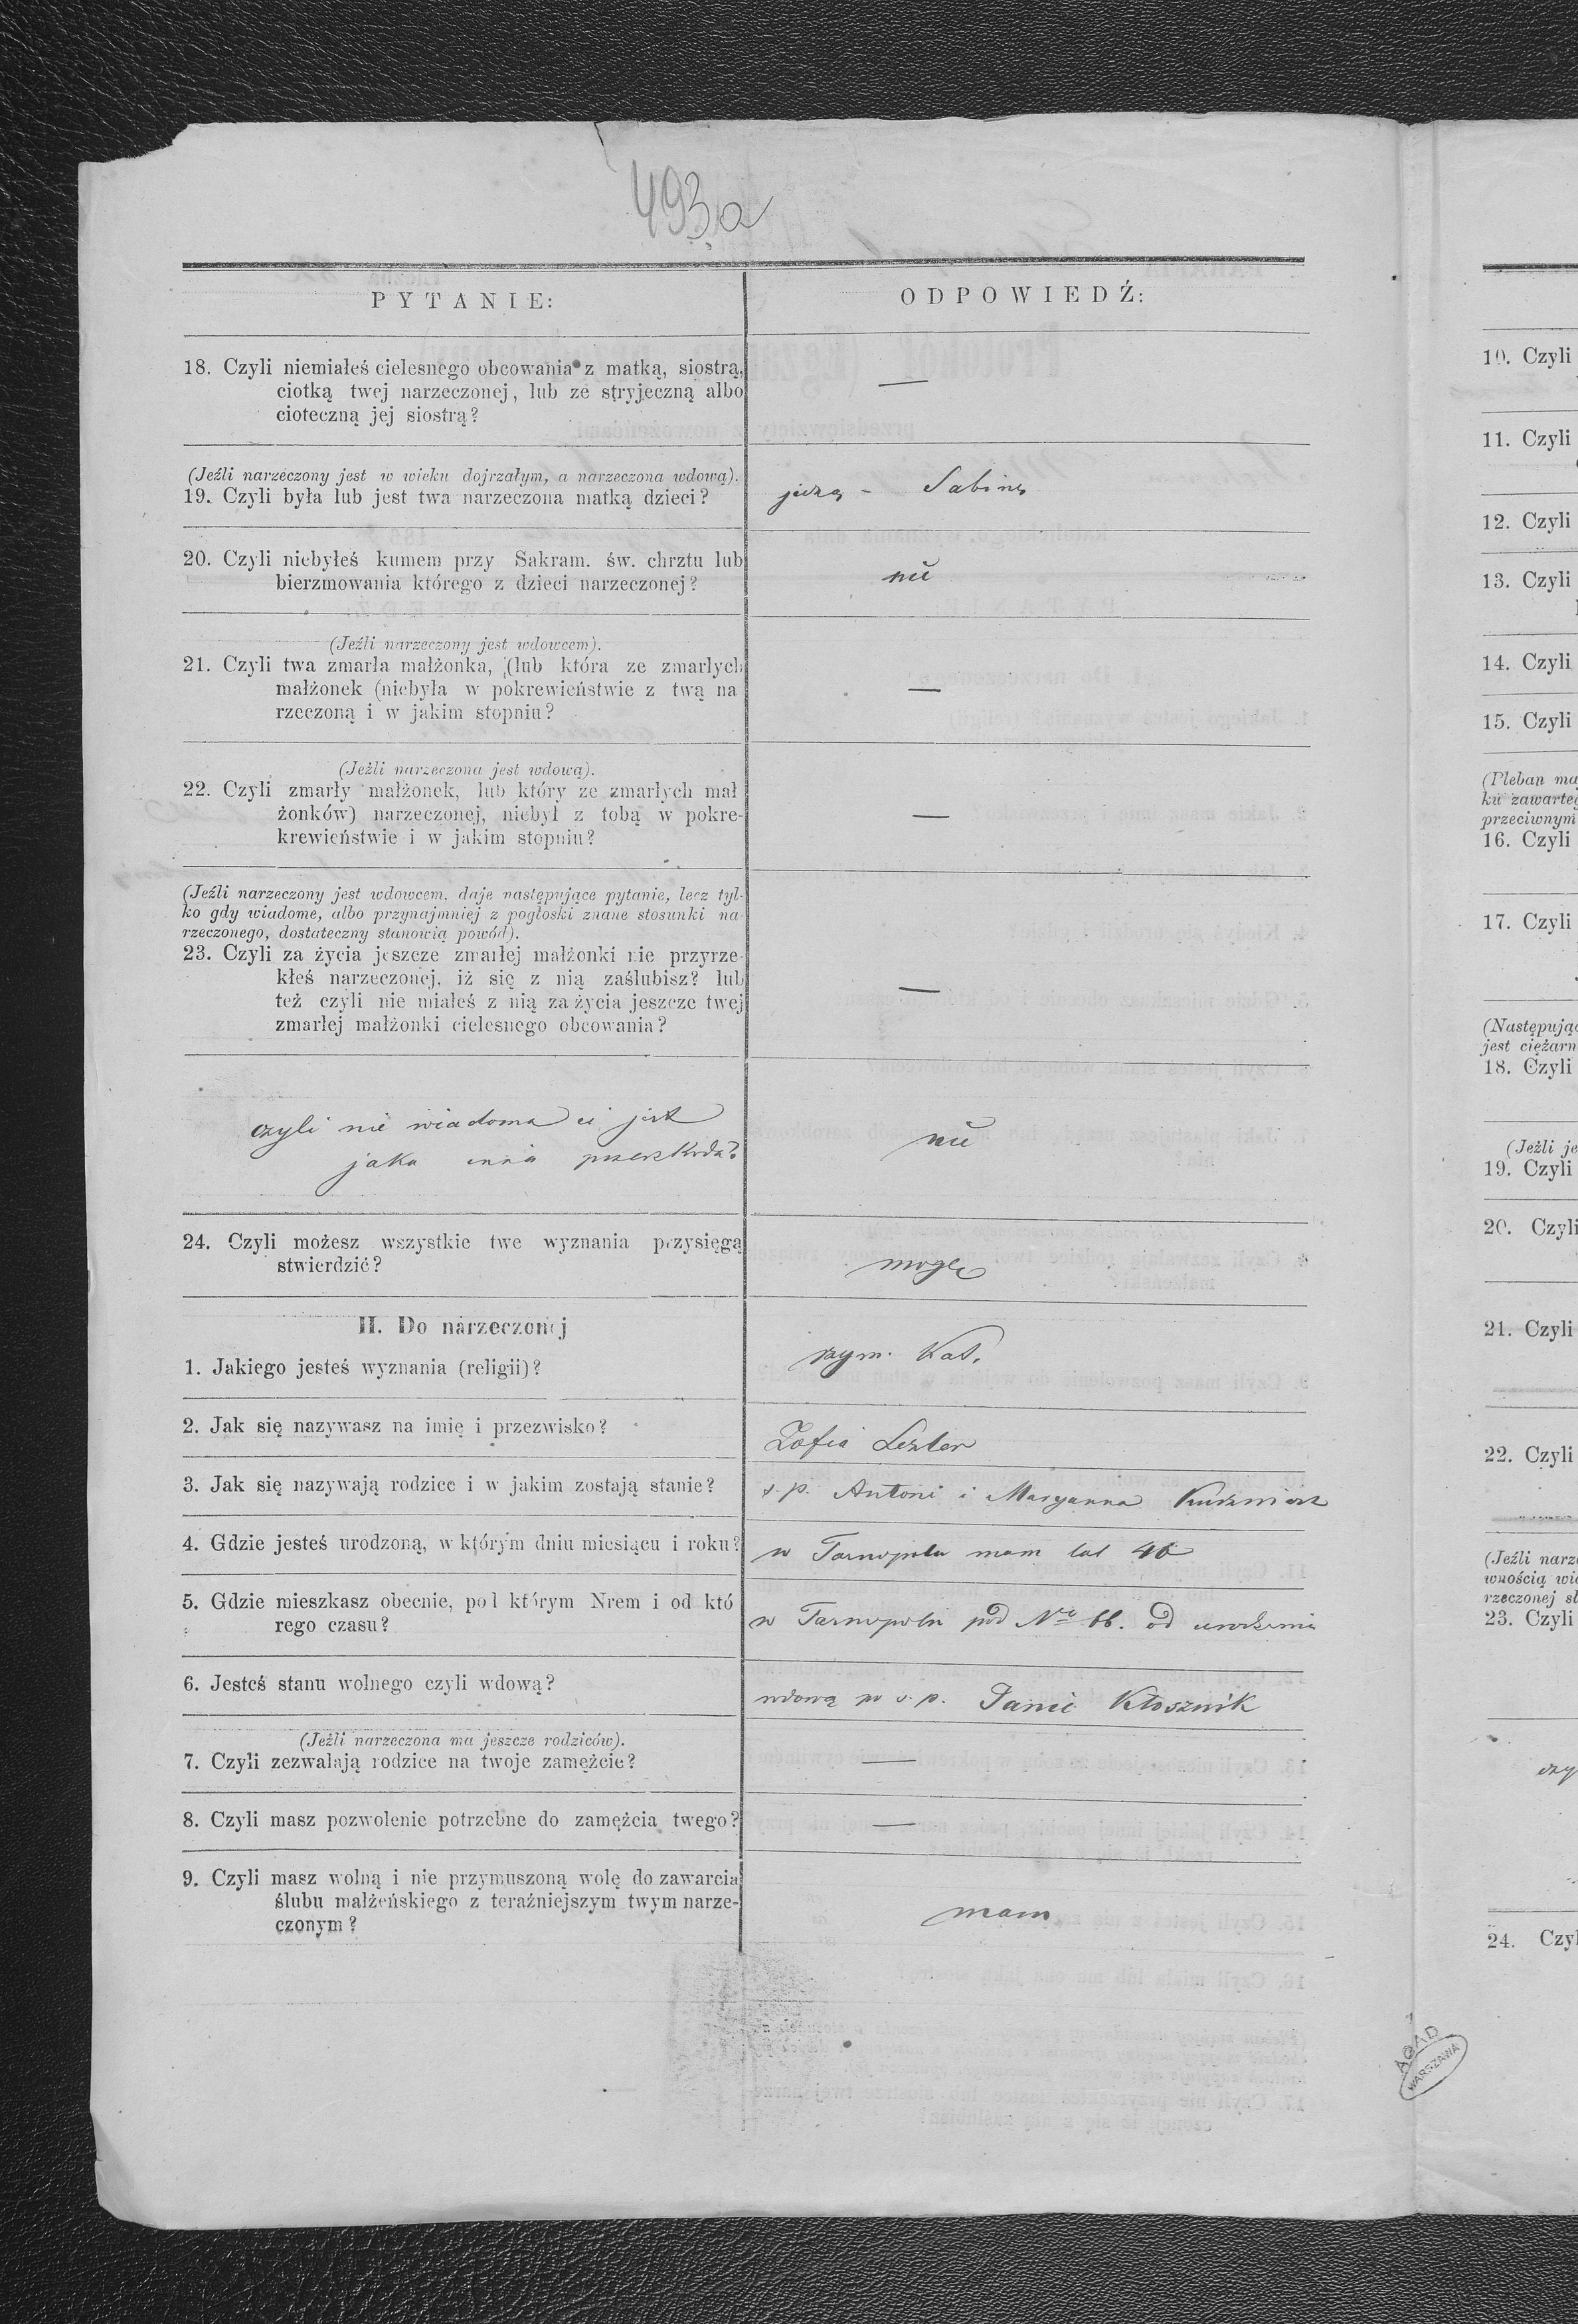 493a
PYTANIE:
ODPOWIEDŹ:
18. Czyli niemiałeś cielesnego obcowania z matką, siostrą,
ciotką twej narzeczonej, lub ze stryjeczną albo
cioteczną jej siostrą?
—
(Jeźli narzeczony jest w wieku dojrzałym, a narzeczona wdową).
19. Czyli była lub jest twa narzeczona matką dzieci?
Sabinę
20. Czyli niebyłeś kumem przy Sakram. św. chrztu lub
bierzmowania którego z dzieci narzeczonej?
nie
(Jeźli narzeczony jest wdowcem).
21. Czyli twa zmarła małżonka, (lub która ze zmarłych
małżonek (niebyła w pokrewieństwie z twą na
rzeczoną i w jakim stopniu?
—
(Jeźli narzeczona jest wdową).
22. Czyli zmarły małżonek, lub który ze zmarłych mał
żonków) narzeczonej, niebył z tobą w pokre-
krewieństwie i w jakim stopniu?
—
(Jeźli narzeczony jest wdowcem, daje następujące pytanie, lecz tyl-
ko gdy wiadome, albo przynajmniej z pogłoski znane stosunki na-
rzeczonego, dostateczny stanowią powód).
23. Czyli za życia jeszcze zmarłej małżonki nie przyrze-
kłeś narzeczonej, iż się z nią zaślubisz? lub
też czyli nie miałeś z nią za życia jeszcze twej
zmarłej małżonki cielesnego obcowania?
—
czyli nie wiadoma ci jest
jaka inna przeszkoda?
nie
24. Czyli możesz wszystkie twe wyznania przysięgą
stwierdzić?
mogę
II. Do narzeczonej
1. Jakiego jesteś wyznania (religii)?
rzym. Kat.
2. Jak się nazywasz na imię i przezwisko?
Zofia
3. Jak się nazywają rodzice i w jakim zostają stanie?
s. p. Antoni i Maryanna Kuszniarz
4. Gdzie jesteś urodzoną, w którym dniu miesiącu i roku?
w Tarnopolu mam lat 46
5. Gdzie mieszkasz obecnie, pod którym Nrem i od któ
rego czasu?
w Tarnopolu pod Nro 66. od urodzenia
6. Jesteś stanu wolnego czyli wdową?
wdową po s. p. Kłosznik
(Jeźli narzeczona ma jeszcze rodziców).
7. Czyli zezwalają rodzice na twoje zamężcie?
—
8. Czyli masz pozwolenie potrzebne do zamężcia twego?
—
9. Czyli masz wolną i nie przymuszoną wolę do zawarcia
ślubu małżeńskiego z teraźniejszym twym narze-
czonym?
mam
10. Czyli
11. Czyli
12. Czyli
13. Czyli
14. Czyli
15. Czyli
(Pleban ma
ku zawarteg
przeciwnym
16. Czyli
17. Czyli
(Następując
jest ciężarn
18. Czyli
(Jeźli je
19. Czyli
20. Czyli
21. Czyli
22. Czyli
(Jeźli narze
wnością wia
rzeczonej st
23. Czyli
czy
24. Czyl
AGAD
WARSZAWA